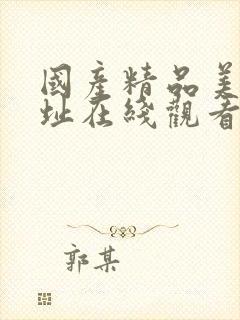 國産精品美
址在綫觀看
郭某